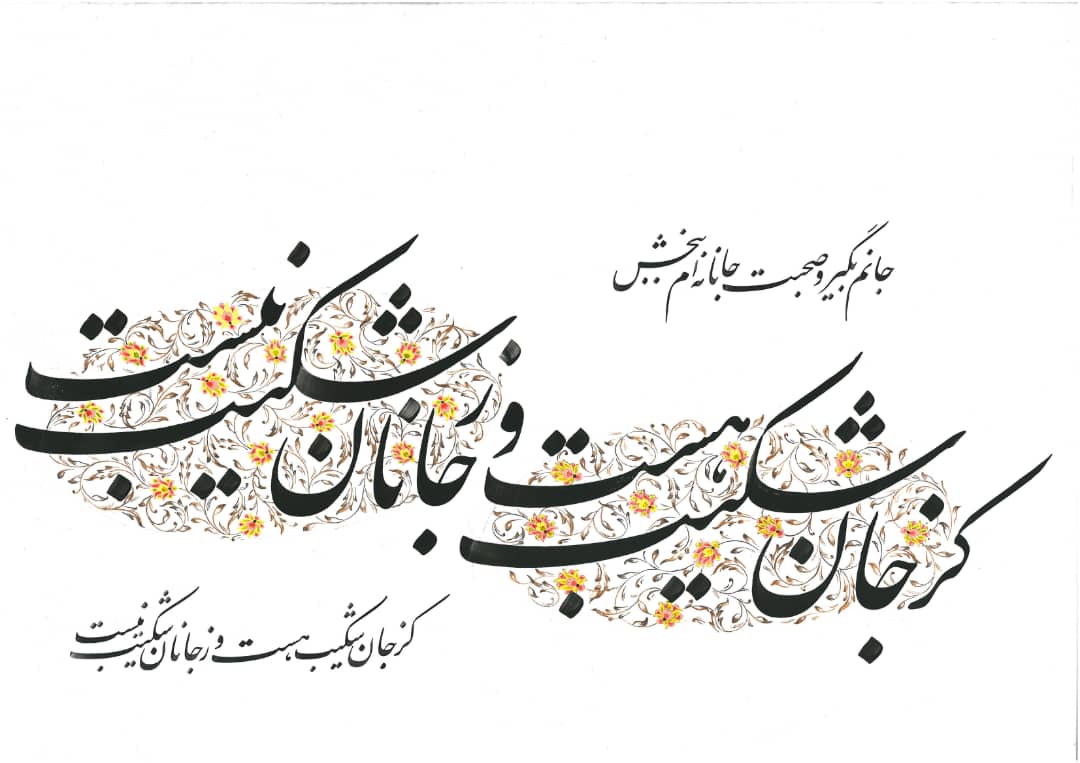 جانم بگیر و صحبت جانانه ام ببخش
کز جان شکیب هست و ز جانان شکیب نیست
کز جان شکیب هست و ز جانان شکیب نیست